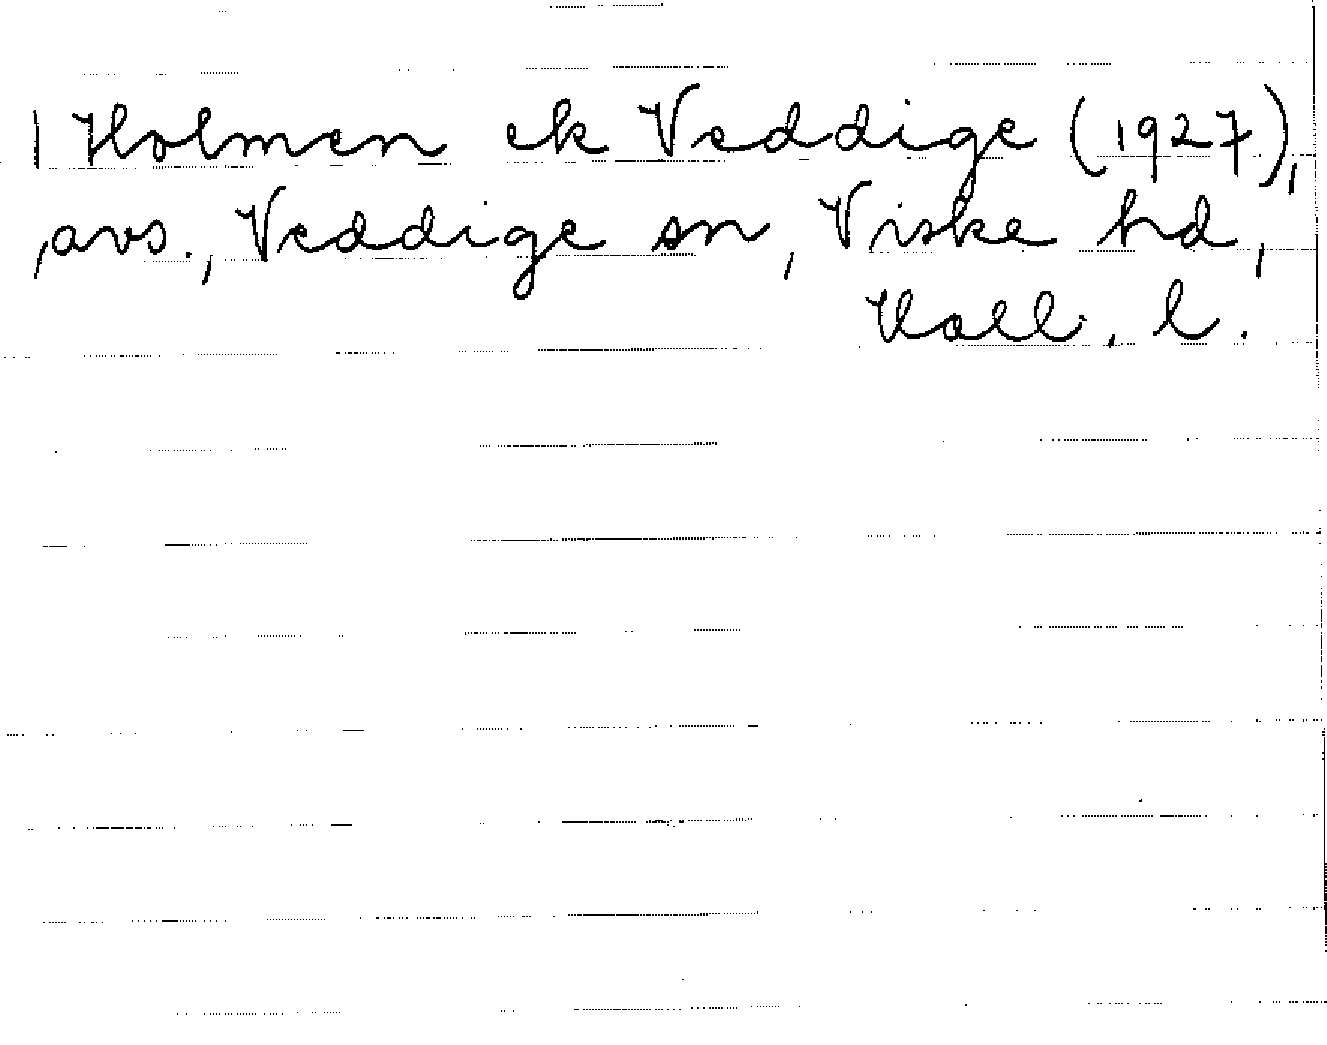 | Holmen ek Veddige (1927),
, avs., Veddige sn, Viske hd,
Hall. l.